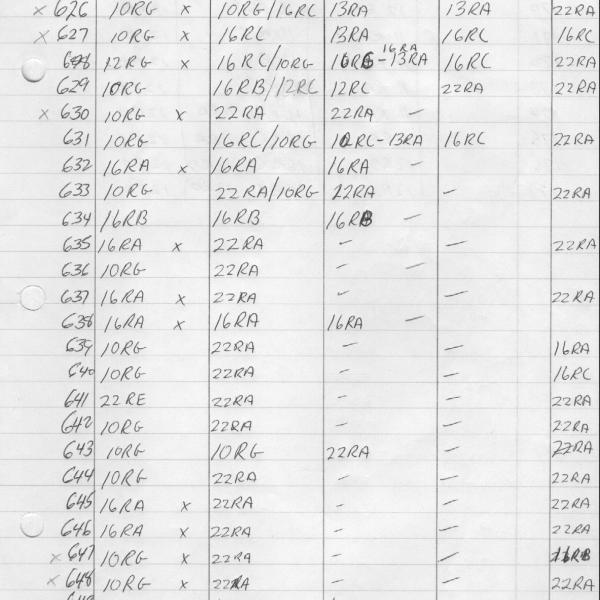 x 626 10RG x 10RG/16RC 13RA 13RA 22RA
x 627 10RG x 16RC 13RA 16RC 16RC
628 12RG x 16RC/10RG 16RA -13RA 16RC 22RA
629 10RG 16RB/12RC 12RC 22RA 22RA
x 630 10RG x 22RA 22RA -
631 10RG 16RC/10RG RC-13RA 16RC 22RA
632 16RA x 16RA 16RA -
633 10RG 22RA/10RG 22RA - 22RA
634 16RB 16RB 16RB -
635 16RA x 22RA - - 22RA
636 10RG 22RA - -
637 16RA x 22RA - - 22RA
638 16RA x 16RA 16RA -
639 10RG 22RA - - 16RA
640 10RG 22RA - - 16RC
641 22RE 22RA - - 22RA
642 10RG 22RA - - 22RA
643 10RG 10RG 22RA - 22RA
644 10RG 22RA - - 22RA
645 16RA x 22RA - - 22RA
646 16RA x 22RA - - 22RA
x 647 10RG x 22RA - -
x 648 10RG x 22RA - - 22RA